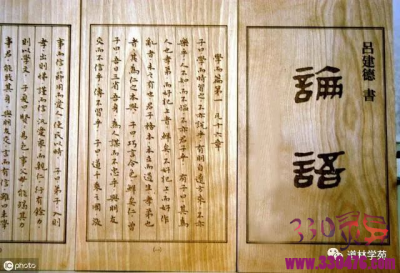 呂建德 書
論語
學而篇第一 凡十六章
子曰學而時習之不亦說乎有朋自遠方來不亦
樂乎人不知而不慍不亦君子乎 有子曰其爲
人也孝弟而好犯上者鮮矣不好犯上而好作
亂者未之有也君子務本本立而道生孝弟也
者其爲仁之本與 子曰巧言令色鮮矣仁 曾
子曰吾日三省吾身爲人謀而不忠乎與朋友
交而不信乎傳不習乎 子曰道千乘之國敬
(一)
事而信節用而愛人使民以時 子曰弟子入則
孝出則悌謹而信汎愛衆而親仁行有餘力
則以學文 子夏曰賢賢易色事父母能竭其力
事君能致其身與朋友交言而有信雖曰未學
330
道林学苑
www.330476.com
photo